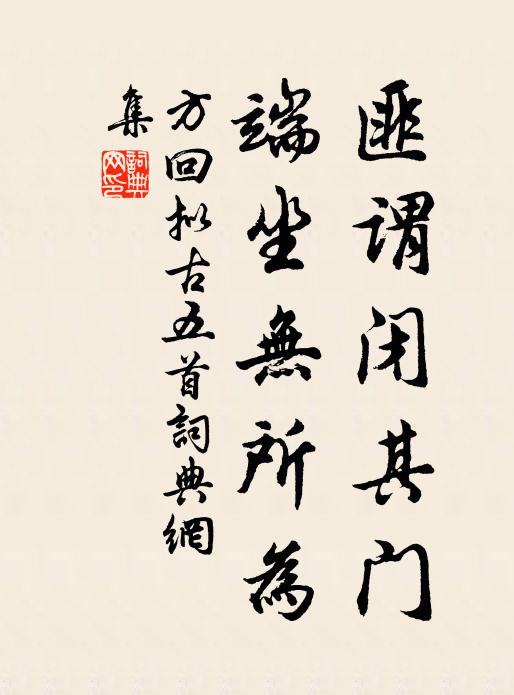 匪谓闭其门
端坐無所為
方回拟古五首詞典網
集
詞典網印